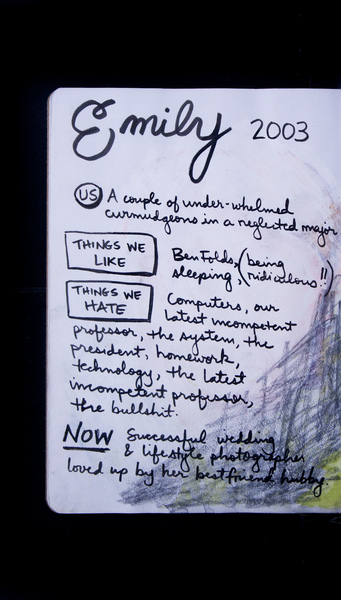 Emily 2003
US A couple of under-whelmed
curmudgeons in a neglected major
THINGS WE
LIKE
Ben Folds, (being
sleeping, ridiculous!!)
THINGS WE
HATE
Computers, our
latest incompetent
professor, the system, the
president, homework,
technology, the latest
incompetent professor,
the bullshit.
NOW Successful wedding
& lifestyle photographer
loved up by her bestfriend hubby.